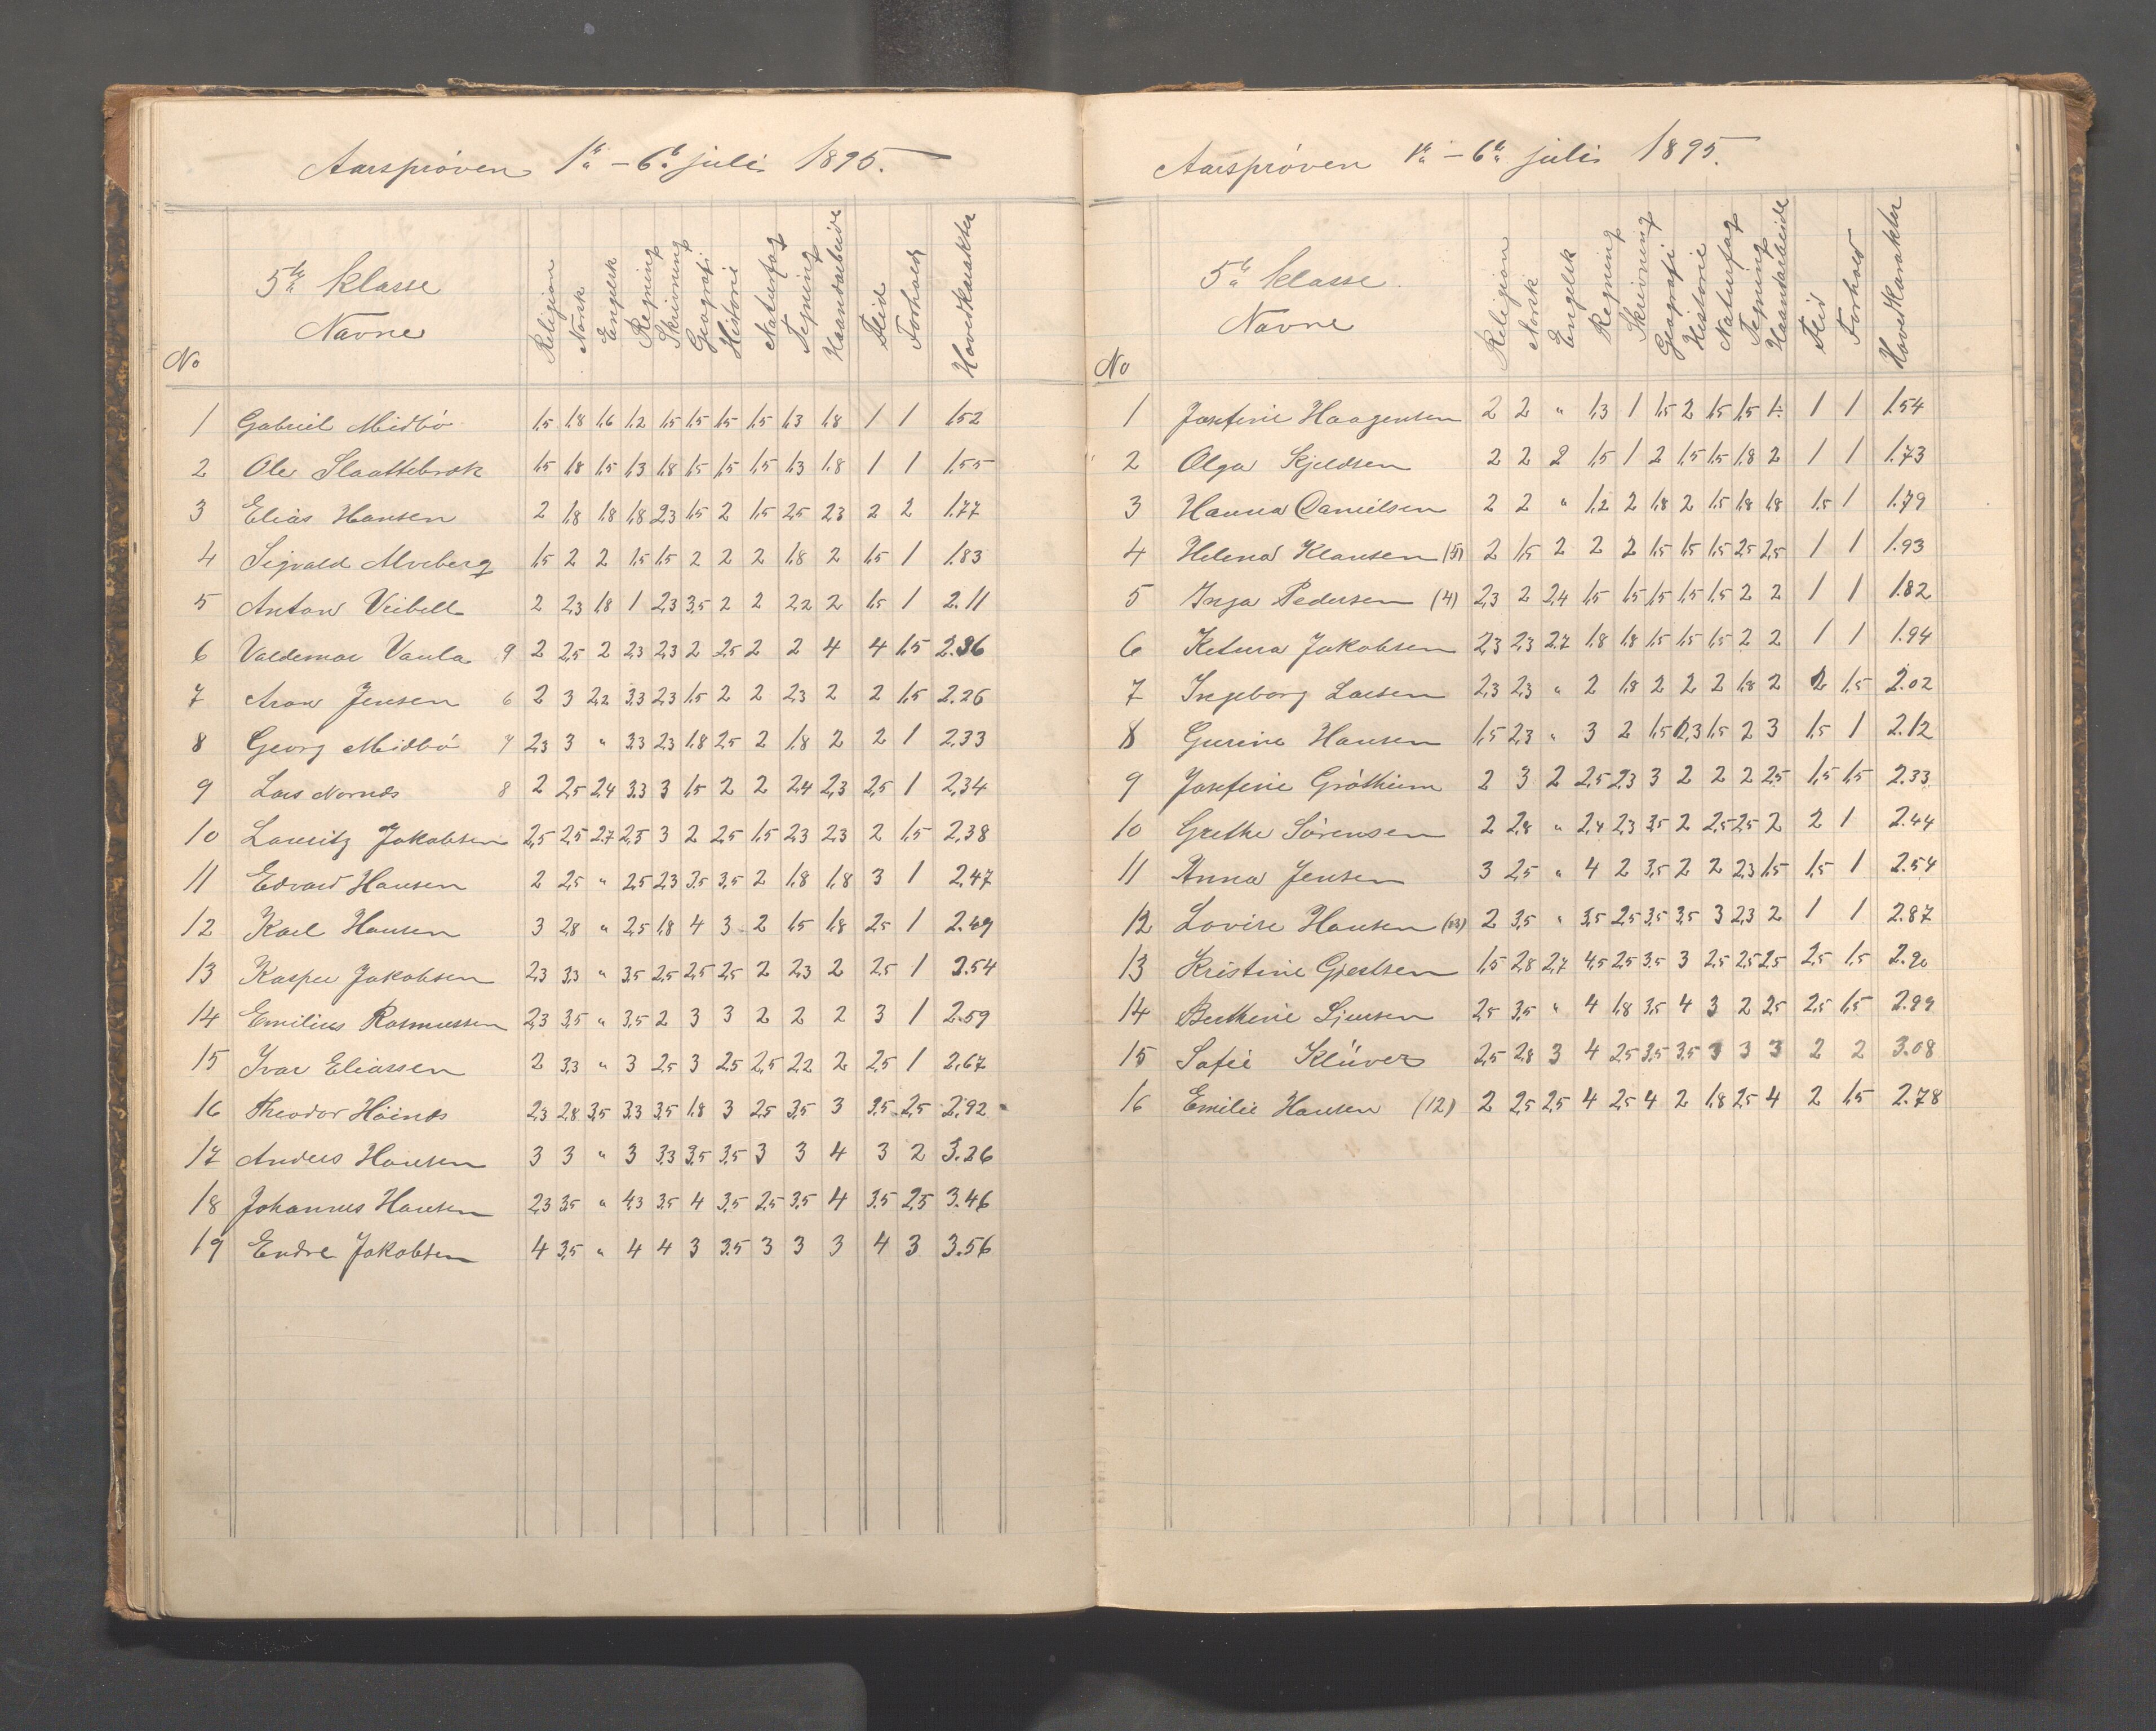 Aarsprøven 1te – 6te juli 1895.
No 5te klasse Navne Religion Norsk Engelsk Regning Skrivning Geografi Historie Naturfag Tegning Haandarbeide Flid Forhold Hovedkarakter
1 Gabriel Midbö 1,5 1,8 1,6 1,2 1,5 1,5 1,5 1,5 1,3 1,8 1 1 1.52
2 Ole Slaattebræk 1,5 1,8 1,5 1,3 1,8 1,5 1,5 1,5 1,3 1,8 1 1 1.55
3 Elias Hansen 2 1,8 1,8 1,8 2,3 1,5 2 1,5 2,5 2,3 2 2 1.77
4 Sigvald Alveberg 1,5 2 2 1,5 1,5 2 2 2 1,8 2 1,5 1 1.83
5 Anton Veibell 2 2,3 1,8 1 2,3 3,5 2 2 2,2 2 1,5 1 2.11
6 Valdemar Vaula 9 2 2,5 2 2,3 2,3 2 2,5 2 2 4 4 1,5 2.36
7 Aron Jensen 6 2 3 2,2 3,3 2,3 1,5 2 2 2,3 2 2 1,5 2.26
8 Georg Midbö 7 2,3 3 " 3,3 2,3 1,8 2,5 2 1,8 2 2 1 2,33
9 Lars Nornes 8 2 2,5 2,4 3,3 3 1,5 2 2 2,4 2,3 2,5 1 2,34
10 Lauritz Jakobsen 2,5 2,5 2,7 2,5 3 2 2,5 1,5 2,3 2,3 2 1,5 2,38
11 Edvard Hansen 2 2,5 " 2,5 2,3 3,5 3,5 2 1,8 1,8 3 1 2,47
12 Karl Hansen 3 2,8 " 2,5 1,8 4 3 2 1,5 1,8 2,5 1 2.49
13 Kasper Jakobsen 2,3 3,3 " 3,5 2,5 2,5 2,5 2 2,3 2 2,5 1 2.54
14 Emilius Rasmussen 2,3 3,5 " 3,5 2 3 3 2 2 2 3 1 2.59
15 Ivar Eliassen 2 3,3 " 3 2,5 3 2,5 2,5 2,2 2 2,5 1 2,67
16 Theodor Höines 2,3 2,8 3,5 3,3 3,5 1,8 3 2,5 3,5 3 3,5 2,5 2,92
17 Anders Hansen 3 3 " 3 3,3 3,5 3,5 3 3 4 3 2 3.26
18 Johannes Hansen 2,3 3,5 " 4,3 3,5 4 3,5 2,5 3,5 4 3,5 2,5 3.46
19 Endre Jakobsen 4 3,5 " 4 4 3 3,5 3 3 3 4 3 3.56
Aarsprøven 1te – 6te juli 1895.
No 5te klasse. Navne Religion Norsk Engelsk Regning Skrivning Geografi Historie Naturfag Tegning Haandarbeide Flid Forhold Hovedkarakter
1 Josefine Haagensen 2 2 " 1,3 1 1,5 2 1,5 1,5 1 1 1.54
2 Olga Kjeldsen 2 2 2 1,5 1 2 1,5 1,5 1,8 2 1 1 1.73
3 Hanna Danielsen 2 2 " 1,2 2 1,8 2 1,5 1,8 1,8 1,5 1 1.79
4 Helena Klausen (5) 2 1,5 2 2 2 1,5 1,5 1,5 2,5 2,5 1 1 1.93
5 Inga Pedersen (4) 2,3 2 2,4 1,5 1,5 1,5 1,5 1,5 2 2 1 1 1.82
6 Ketura Jakobsen 2,3 2,3 2,7 1,8 1,8 1,5 1,5 1,5 2 2 1 1 1.94
7 Ingeborg Larsen 2,3 2,3 " 2 1,8 2 2 2 1,8 2 2 1,5 2.02
8 Gurine Hansen 1,5 2,3 " 3 2 1,5 2,3 1,5 2 3 1,5 1 2.12
9 Josefine Grötheim 2 3 2 2,5 2,3 3 2 2 2 2,5 1,5 1,5 2.33
10 Grethe Sörensen 2 2,8 " 2,4 2,3 3,5 2 2,5 2,5 2 2 1 2.44
11 Anna Jensen 3 2,5 " 4 2 3,5 2 2 2,3 1,5 1,5 1 2.54
12 Lovise Hansen (13) 2 3,5 " 3,5 2,5 3,5 3,5 3 2,3 2 1 1 2.87
13 Kristine Gjertsen 1,5 2,8 2,7 4,5 2,5 3,5 3 2,5 2,5 2,5 2,5 1,5 2.90
14 Berthine Sjursen 2,5 3,5 " 4 1,8 3,5 4 3 2 2,5 2,5 1,5 2.99
15 Sofie Klüver 2,5 2,8 3 4 2,5 3,5 3,5 3 3 3 2 2 3.08
16 Emilie Hansen (12) 2 2,5 2,5 4 2,5 4 2 1,8 2,5 4 2 1,5 2.78